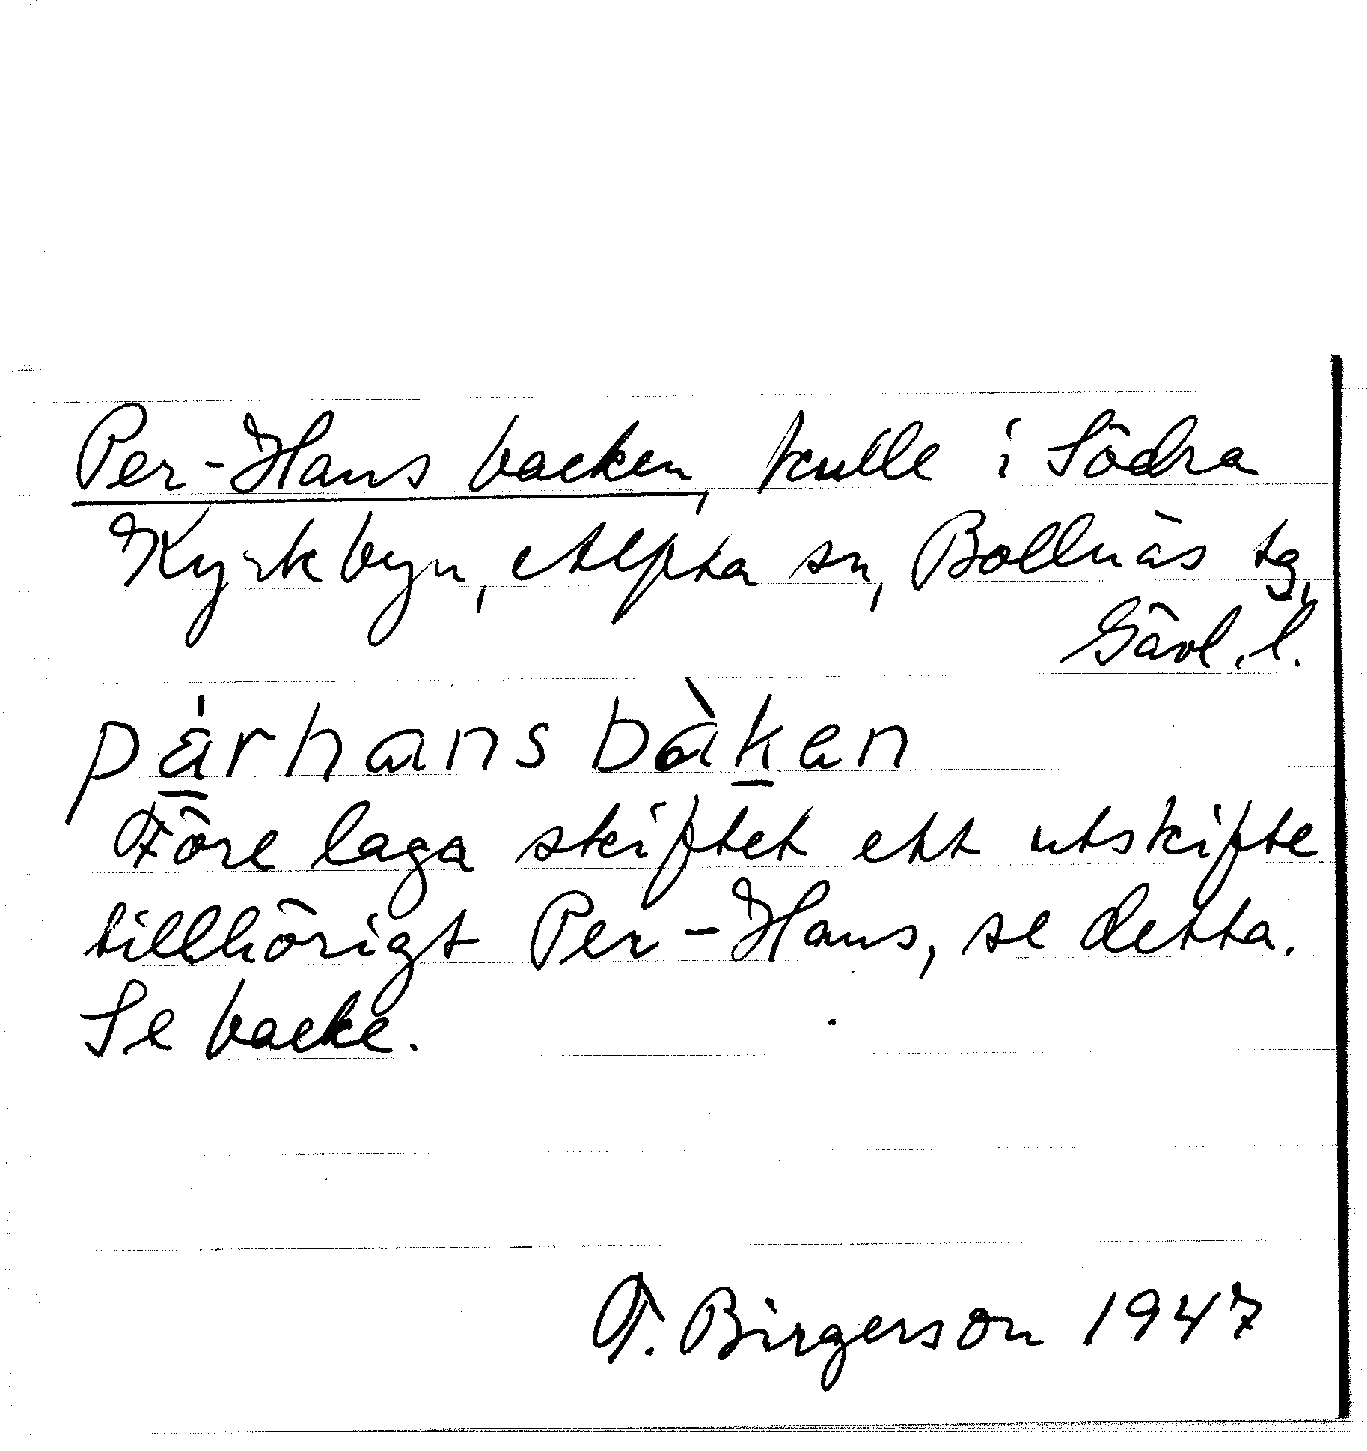 Per-Hans backen, kulle i Södra
Kyrkbyn, Alfta sn, Bollnäs tg,
Gävl. l.
pàrhans bàken
Före laga skiftet ett utskifte
tillhörigt Per-Hans, se detta.
Se backe.
T. Birgerson 1947